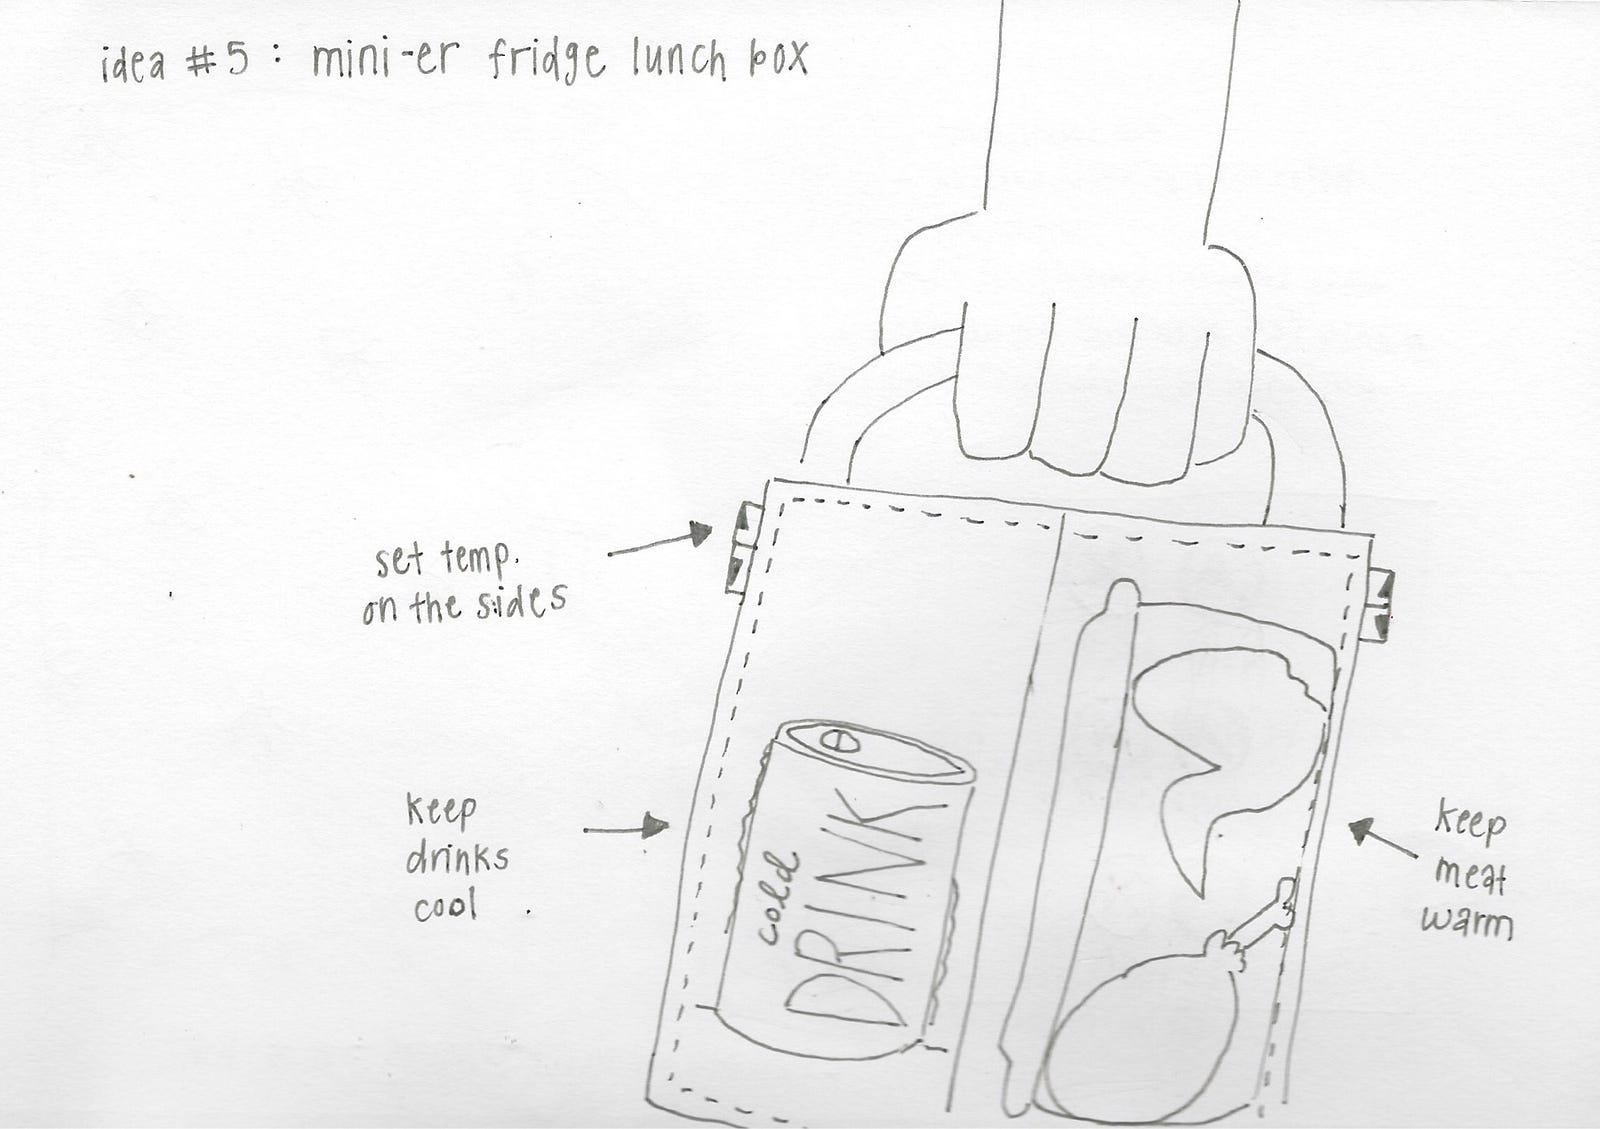 idea #5 : mini-er fridge lunch box
set temp.
on the sides
keep
drinks
cool
cold
DRINK
keep
meat
warm